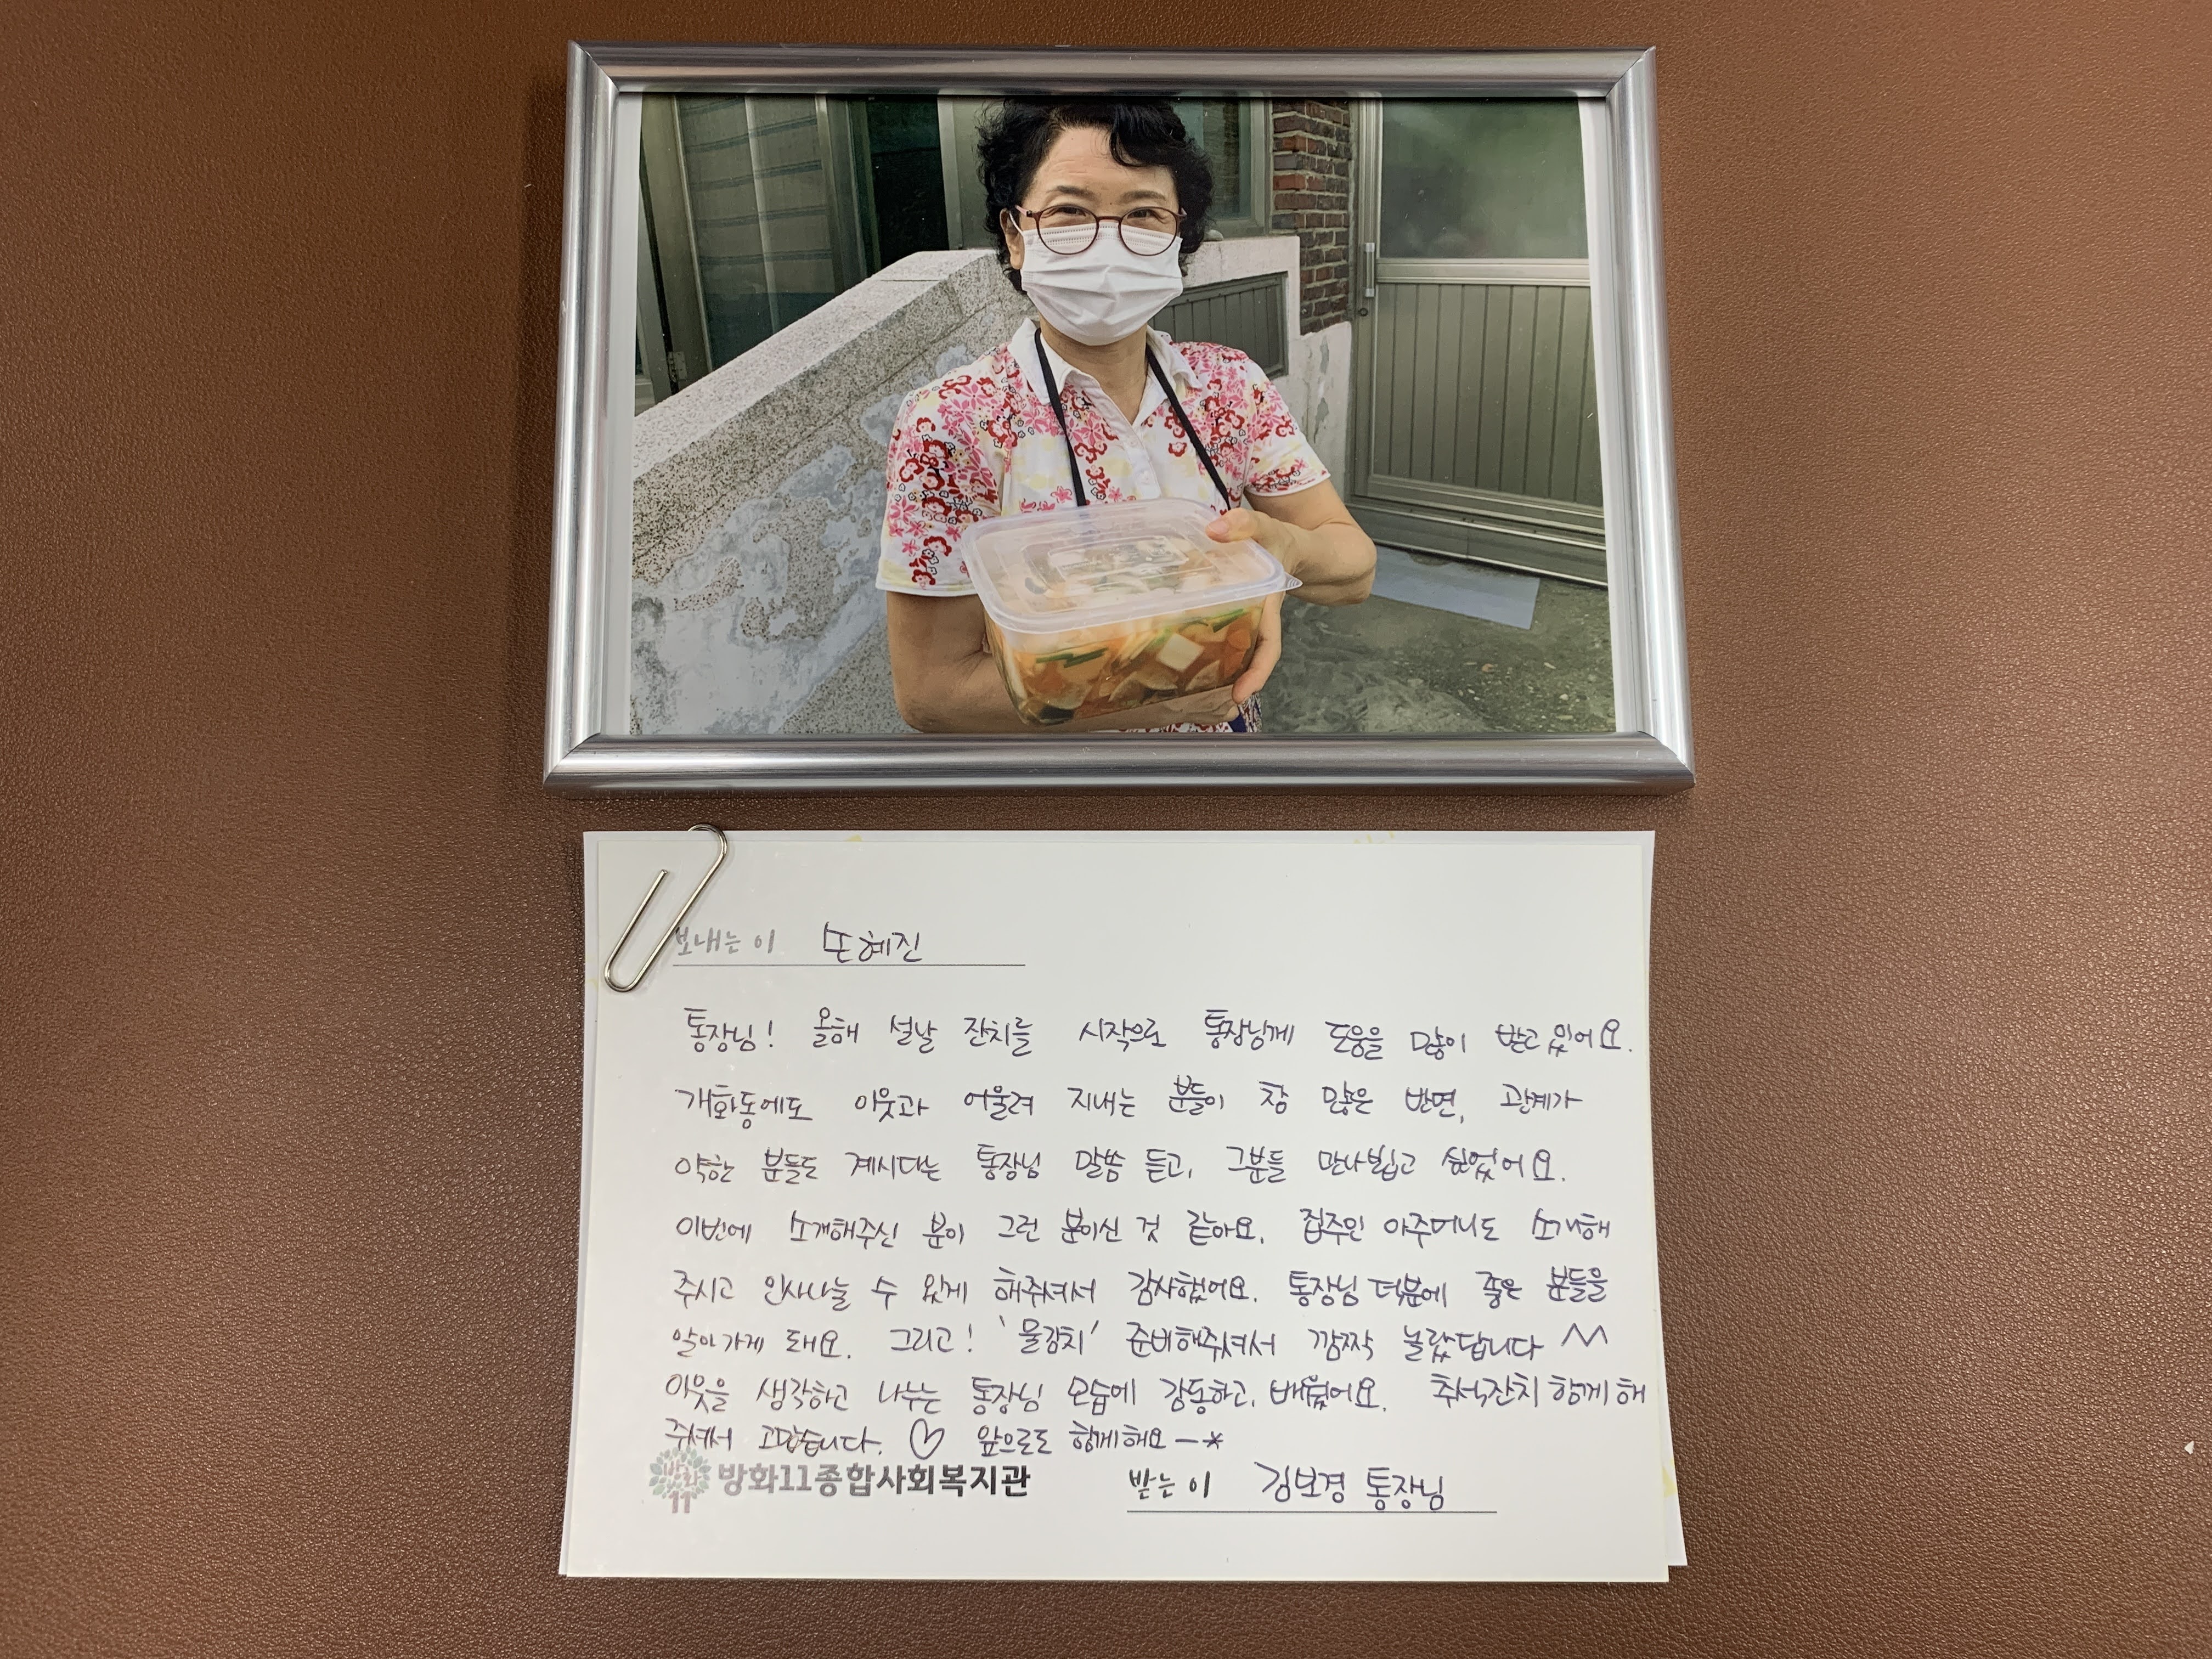 보내는 이 손혜진
통장님! 올해 설날 잔치를 시작으로 통장님께 도움을 많이 받고 있어요.
개화동에도 이웃과 어울려 지내는 분들이 참 많은 반면, 관계가
약한 분들도 계시다는 통장님 말씀 듣고, 그분들 만나뵙고 싶었어요.
이번에 소개해주신 분이 그런 분이신 것 같아요. 집주인 아주머니도 소개해
주시고 인사나눌 수 있게 해주셔서 감사했어요. 통장님 덕분에 좋은 분들을
알아가게 돼요. 그리고! '물김치' 준비해주셔서 깜짝 놀랐답니다 ^^
이웃을 생각하고 나누는 통장님 모습에 감동하고, 배웠어요. 추석잔치 함께 해
주셔서 고맙습니다. ♡ 앞으로도 함께해요 —*
방화11 방화11종합사회복지관 받는 이 김보경 통장님